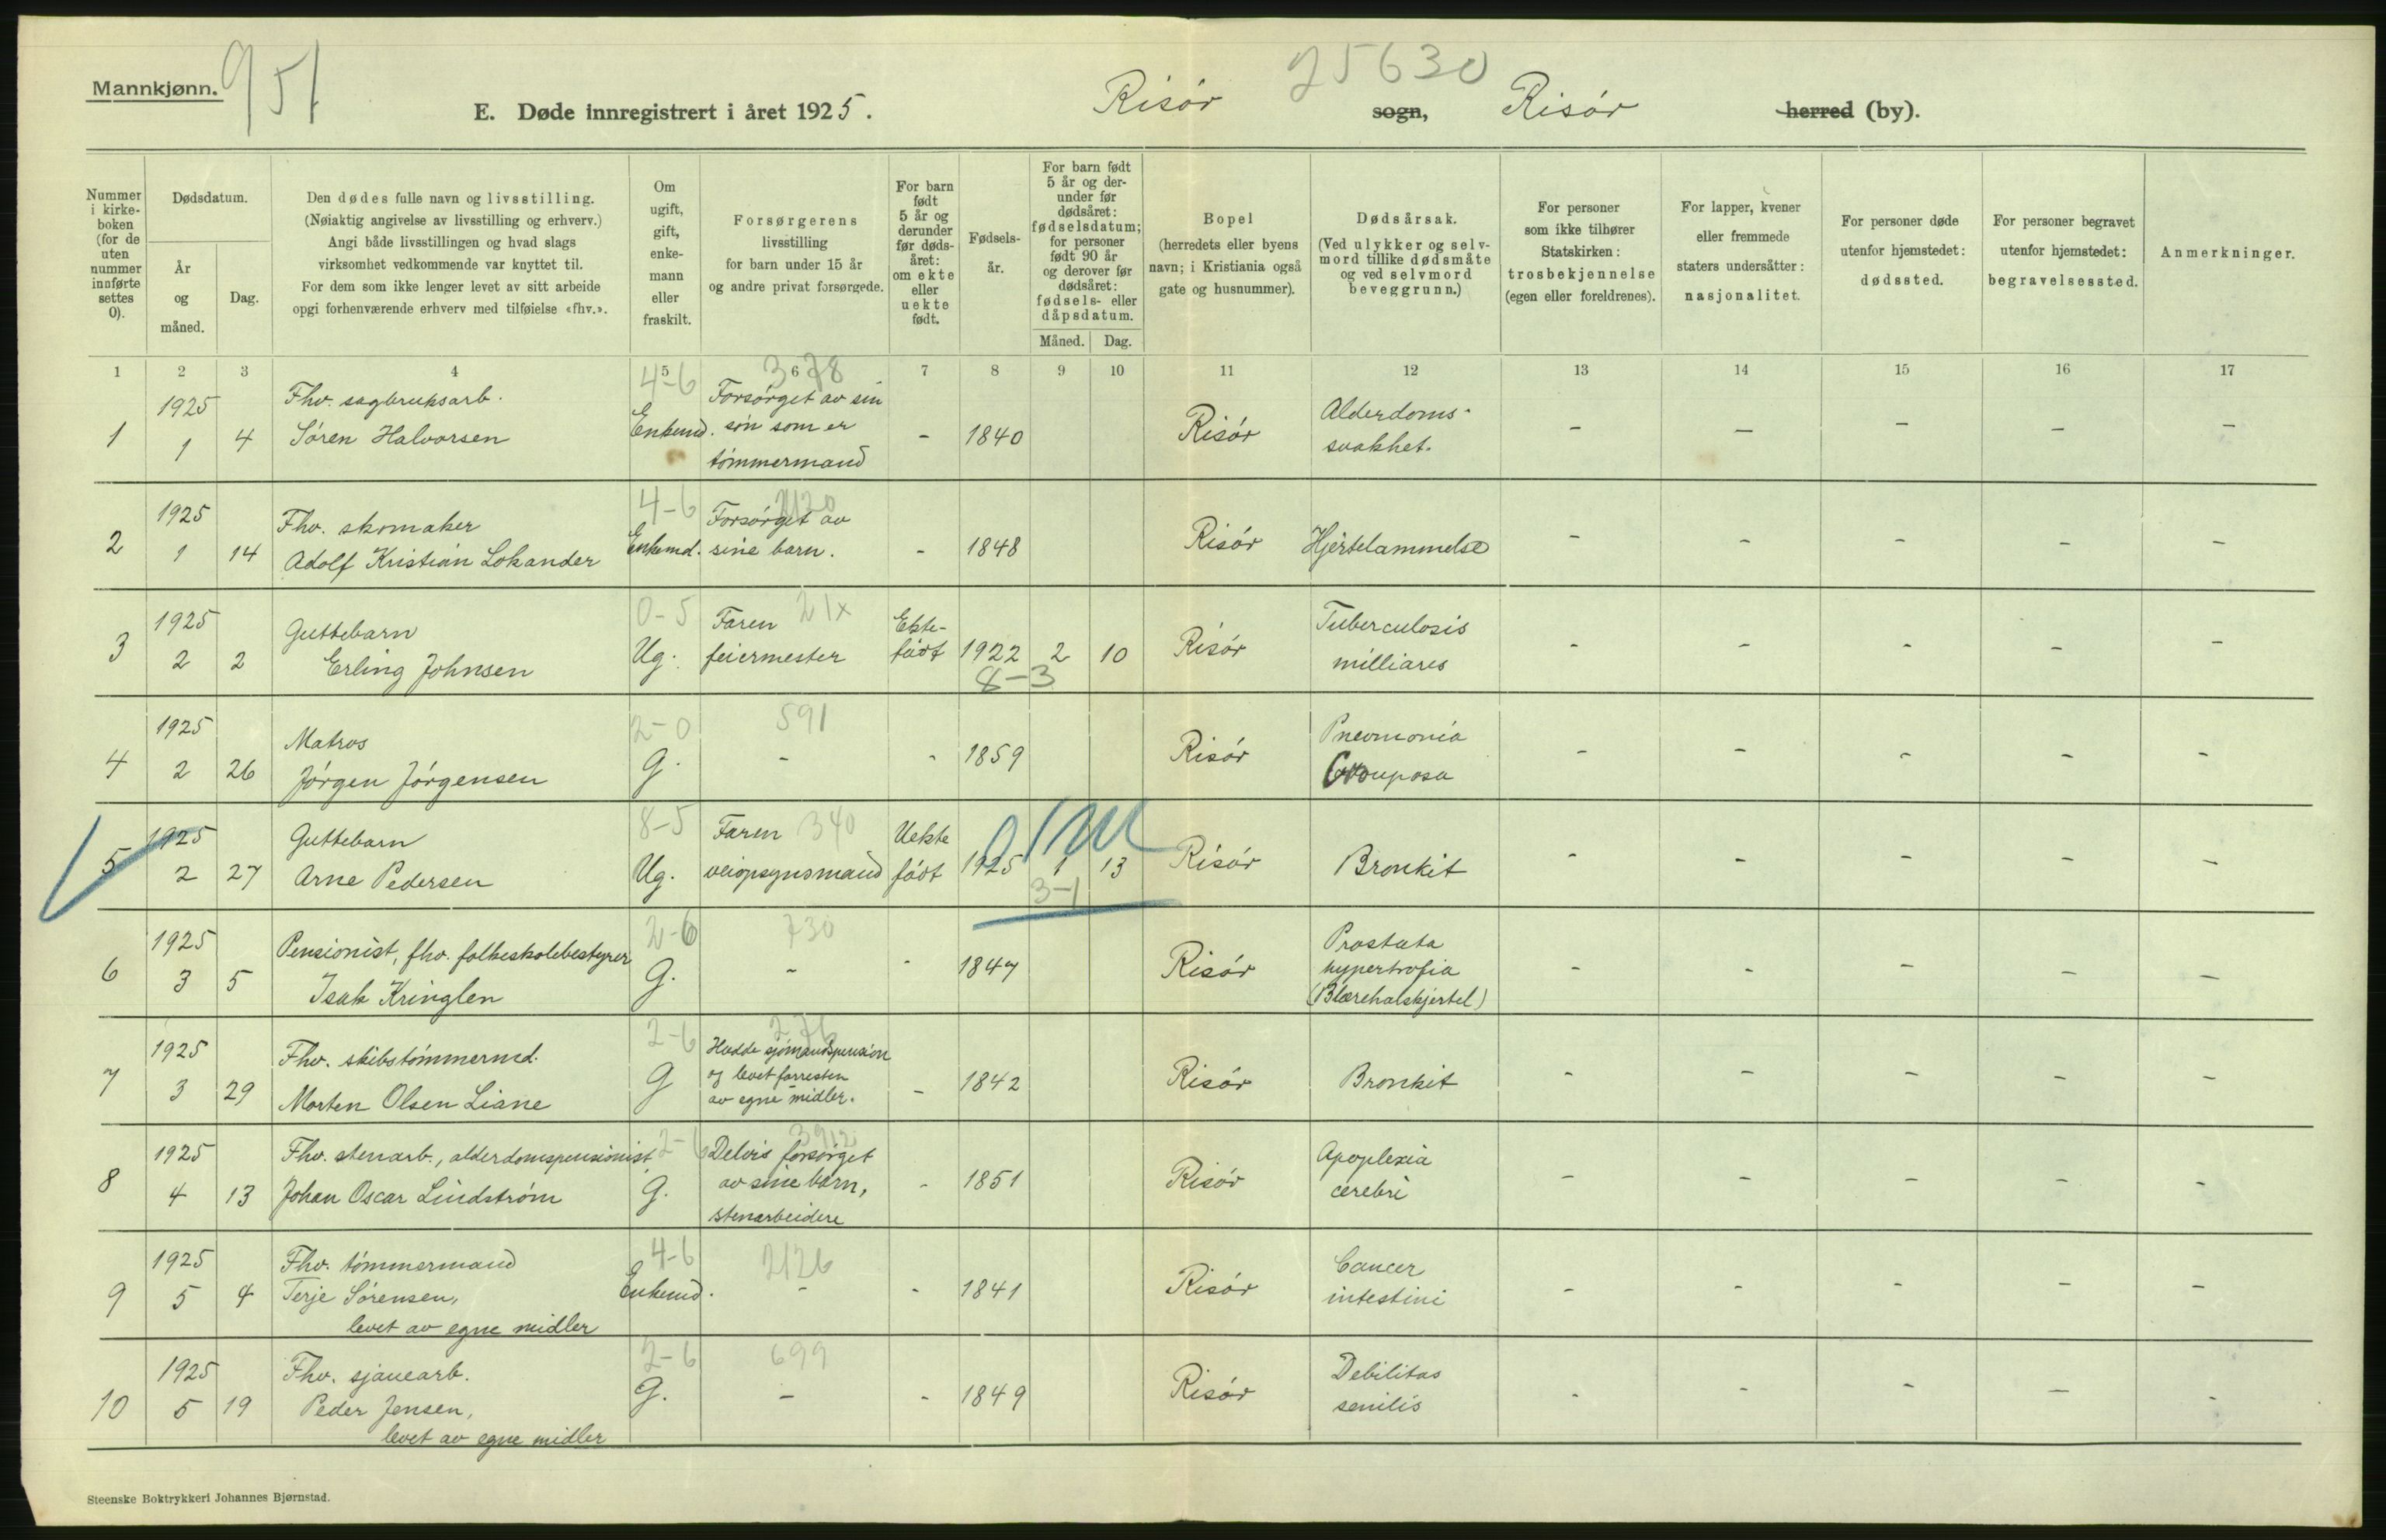 Mannkjønn.
951
25630
E. Døde innregistrert i året 1925.
Risór sogn, Risór herred (by).
Nummer i kirke- boken (for de uten nummer innførte settes 0).
Dødsdatum.
År og måned.
Dag.
Den dødes fulle navn og livsstilling.
(Nøiaktig angivelse av livsstilling og erhverv.)
Angi både livsstillingen og hvad slags
virksomhet vedkommende var knyttet til.
For dem som ikke lenger levet av sitt arbeide
opgi forhenværende erhverv med tilføielse «fhv.».
Om ugift, gift, enke- mann eller fraskilt.
Forsørgerens
livsstilling
for barn under 15 år
og andre privat forsørgede.
For barn født 5 år og derunder før døds- året: om ekte eller uekte født.
Fødsels- år.
For barn født 5 år og der- under før dødsåret: fødselsdatum; for personer født 90 år og derover før dødsåret: fødsels- eller dåpsdatum.
Måned. Dag.
Bopel
(herredets eller byens
navn; i Kristiania også
gate og husnummer).
Dødsårsak.
(Ved ulykker og selv-
mord tillike dødsmåte
og ved selvmord
beveggrunn.)
For personer
som ikke tilhører
Statskirken:
trosbekjennelse
(egen eller foreldrenes).
For lapper, kvener
eller fremmede
staters undersåtter:
nasjonalitet.
For personer døde
utenfor hjemstedet:
dødssted.
For personer begravet
utenfor hjemstedet:
begravelsessted.
Anmerkninger.
1 2 3 4 5 6 7 8 9 10 11 12 13 14 15 16 17
4-6 3678
1925 Fhv. sagbruksarb. Forsørget av sin Alderdoms-
1 1 4 Sóren Halvorsen Enkemd. són som er - 1840 Risór svakhet. - - - - -
tómmermand
4-6 2120
1925 Fhv. skomaker Forsórget av
2 1 14 Adolf Kristian Lokander Enkemd. sine barn. - 1848 Risór Hjertelammelse - - - - -
0-5 21x
1925 Guttebarn Faren Ekte- Tuberculosis
3 2 2 Erling Johnsen Ug. feiermester fódt 1922 2 10 Risór milliares - - - - -
8-3
2-0 591
1925 Matros Pneumonia
4 2 26 Jórgen Jórgensen G. - - 1859 Risór Crouposa - - - - -
8-5 340
1925 Guttebarn Faren Uekte
5 2 27 Arne Pedersen Ug. veiopsynsmand fódt 1925 1 13 Risór Bronkit - - - - -
3-1
2-6 730
1925 Pensionist, fhv. folkeskolebestyrer Prostata
6 3 5 Isak Kringlen G. - - 1847 Risór hypertrofia - - - - -
(Blærehalskjertel)
2-6 276
1925 Fhv. skibstómmermd. Hadde sjómandspension
7 3 29 Morten Olsen Liane G og levet forresten - 1842 Risór Bronkit - - - - -
av egne midler.
2-6 3912
1925 Fhv. stenarb., alderdomspensionist Delvis forsórget Apoplexia
8 4 13 Johan Oscar Lindstróm G. av sine barn, - 1851 Risór cerebri - - - - -
stenarbeidere
4-6 2126
1925 Fhv. tómmermand Cancer
9 5 4 Terje Sórensen, Enkemd. - - 1841 Risór intestini - - - - -
levet av egne midler
2-6 699
1925 Fhv. sjauearb. Debilitas
10 5 19 Peder Jensen, G. - - 1849 Risór senilis - - - - -
levet av egne midler
Steenske Boktrykkeri Johannes Bjørnstad.